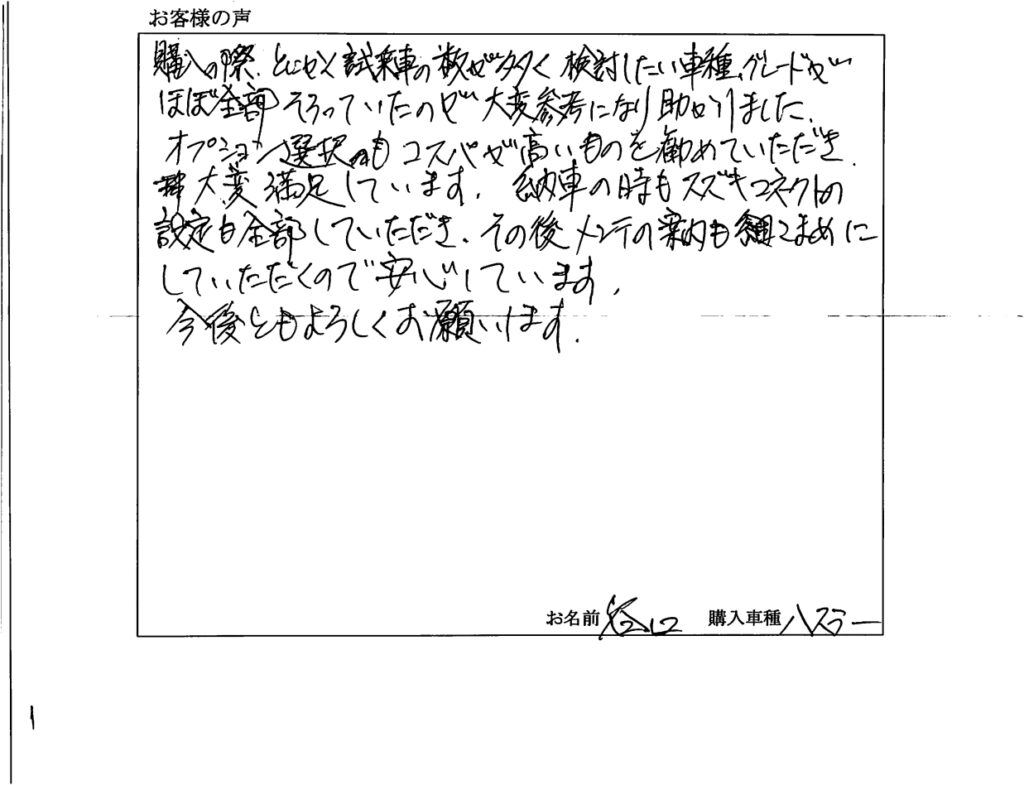 お客様の声
購入の際、とにかく試乗車の数が多く検討したい車種、グレードが
ほぼ全部そろっていたので大変参考になり助かりました。
オプション選択もコスパが高いものを勧めていただき、
大変満足しています。納車の時もスズキコネクトの
設定も全部していただき、その後メンテの案内も細こまめに
していただくので安心しています。
今後ともよろしくお願いします。
お名前 谷口 購入車種 ハスラー